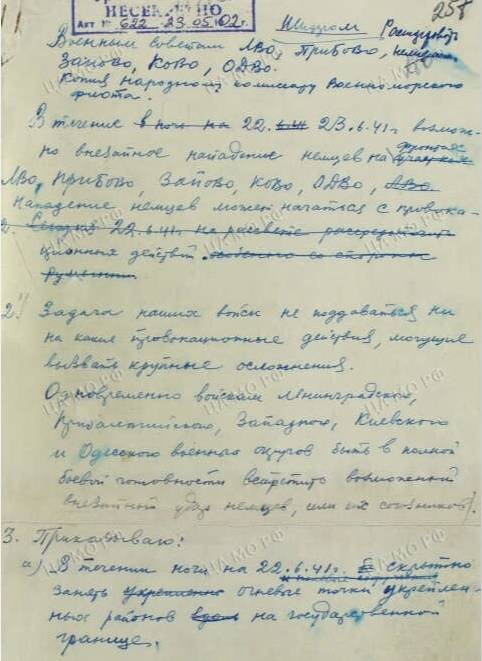 НЕСЕКРЕТНО
Акт № 622 23.05.02г.
258
Шифром
Военным советам ЛВО, ПрибОВО,
ЗапОВО, КОВО, ОДВО.
Копия народному комиссару Военноморского
флота.
В течение в ночь на 22. 23.6.41г. возмож-
но внезапное нападение немцев на фронтах
ЛВО, ПрибОВО, ЗапОВО, КОВО, ОДВО, ЛВО
Нападение немцев может начаться с провока-
2. Сегодня 22.6.41г. на рассвете рассредоточить
ционных действий. особенно со стороны
Румынии
2.) Задача наших войск не поддаваться ни
на какие провокационные действия, могущие
вызвать крупные осложнения.
Одновременно войскам Ленинградского,
Прибалтийского, Западного, Киевского
и Одесского военных округов быть в полной
боевой готовности встретить возможный
внезапный удар немцев, или их союзников.
3. Приказываю:
а) В течении ночи на 22.6.41г. скрытно
занять укрепленно огневые точки укреплен-
ных районов вдоль на государственной
границе.
ЦАМО РФ